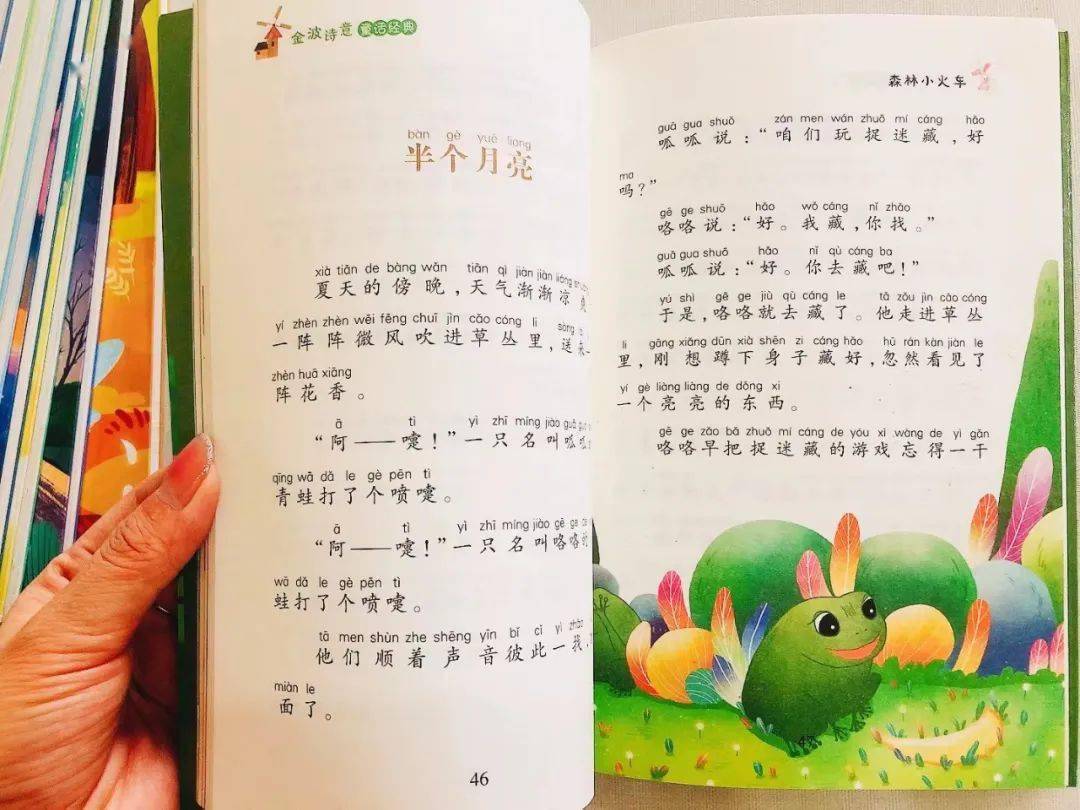 金波诗意 童话经典
bàn gè yuè liang
半个月亮
xià tiān de bàng wǎn tiān qì jiàn jiàn liáng
夏天的傍晚，天气渐渐凉
yí zhèn zhèn wēi fēng chuī jìn cǎo cóng li sòng
一阵阵微风吹进草丛里，送来
zhèn huā xiāng
阵花香。
ā tì yì zhī míng jiào guā
“阿——嚏！”一只名叫呱
qīng wā dǎ le gè pēn tì
青蛙打了个喷嚏。
ā tì yì zhī míng jiào gē ge de
“阿——嚏！”一只名叫咯咯的
wā dǎ le gè pēn tì
蛙打了个喷嚏。
tā men shùn zhe shēng yīn bǐ cǐ yì zhǎo
他们顺着声音彼此一找，
miàn le
面了。
46
森林小火车
guā gua shuō zán men wán zhuō mí cáng hǎo
呱呱说：“咱们玩捉迷藏，好
ma
吗？”
gē ge shuō hǎo wǒ cáng nǐ zhǎo
咯咯说：“好。我藏，你找。”
guā gua shuō hǎo nǐ qù cáng ba
呱呱说：“好。你去藏吧！”
yú shì gē ge jiù qù cáng le tā zǒu jìn cǎo cóng
于是，咯咯就去藏了。他走进草丛
li gāng xiǎng dūn xià shēn zi cáng hǎo hū rán kàn jiàn le
里，刚想蹲下身子藏好，忽然看见了
yí gè liàng liàng de dōng xi
一个亮亮的东西。
gē ge zǎo bǎ zhuō mí cáng de yóu xì wàng de yì gān
咯咯早把捉迷藏的游戏忘得一干
47